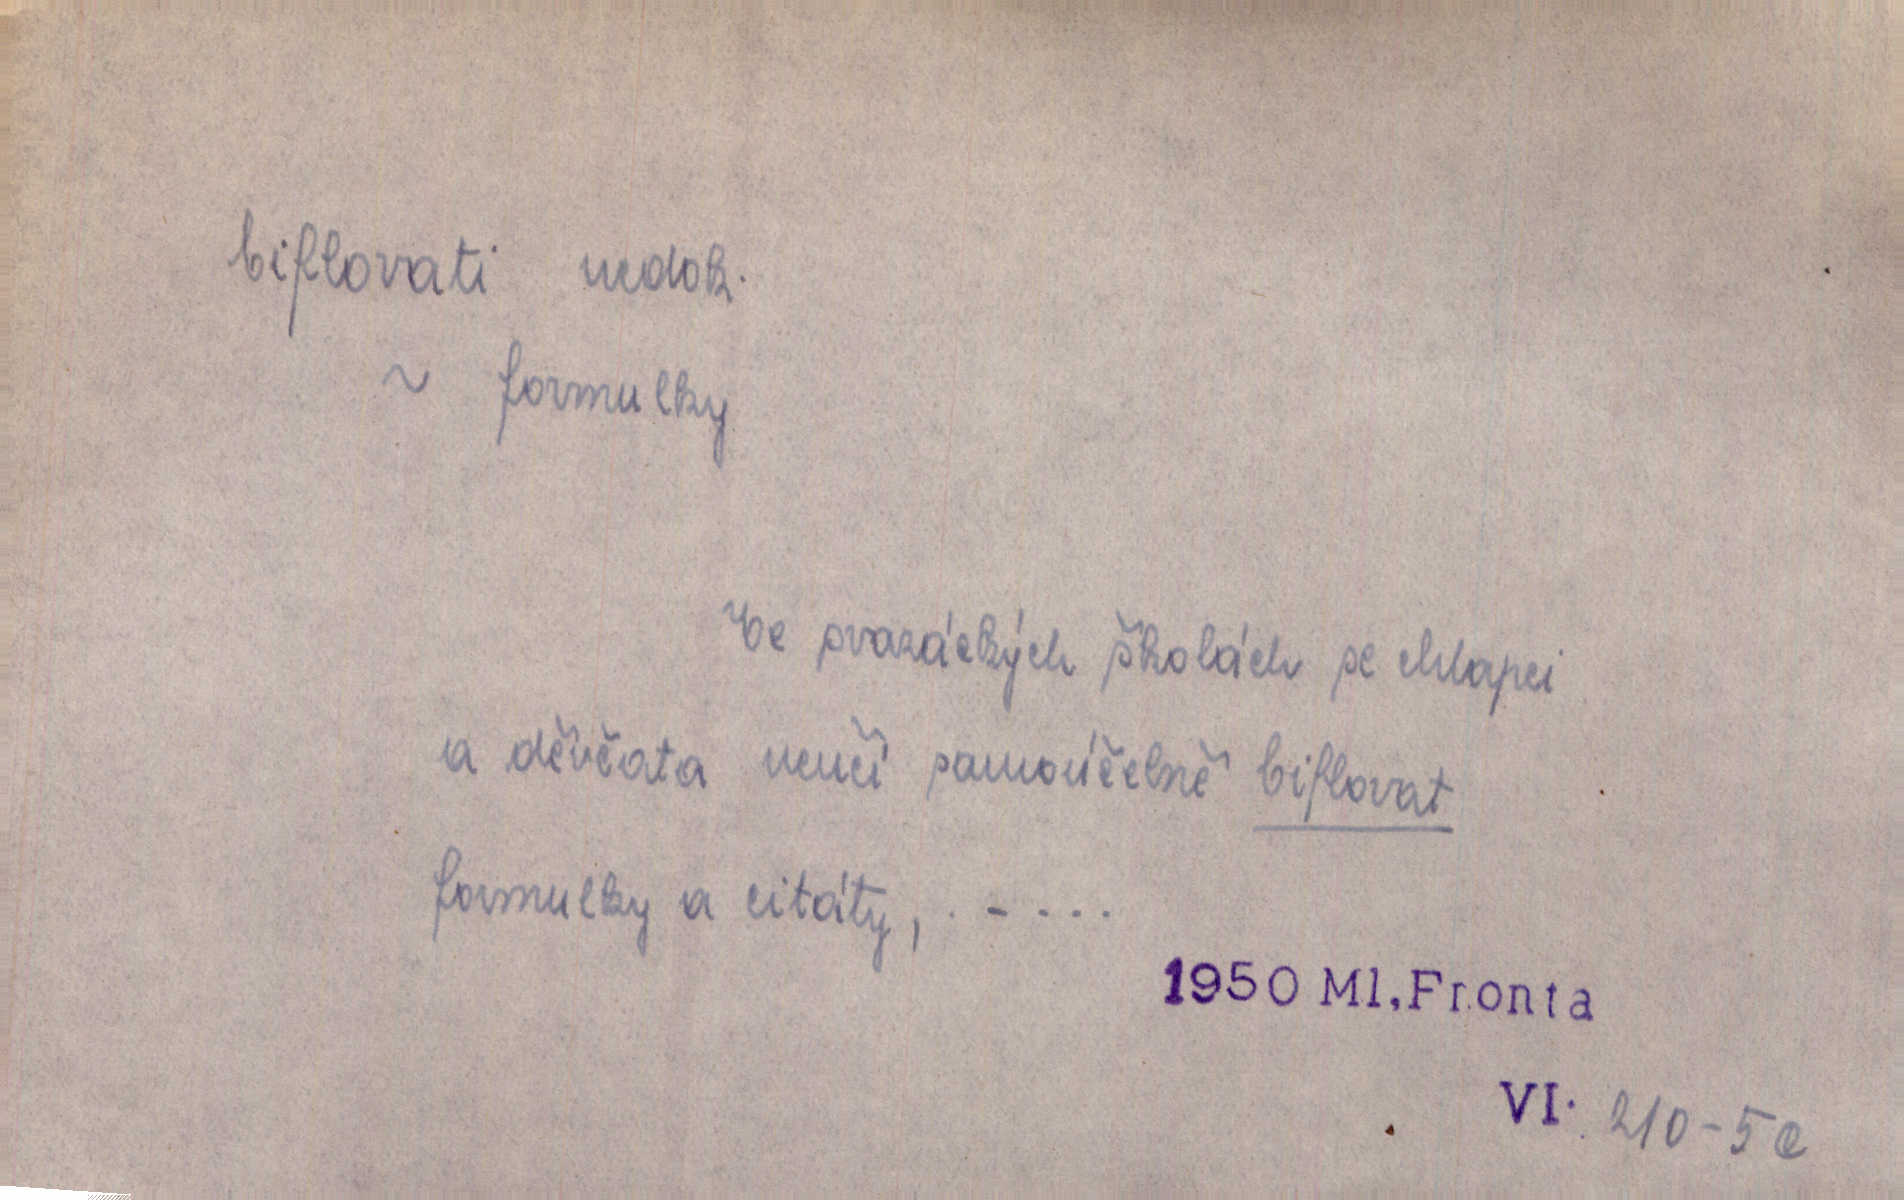 biflovati nedok.
~ formulky
Ve svazáckých školách se chlapci
a děvčata neučí samoúčelně biflovat
formulky a citáty, . - . . .
1950 Ml,Fronta
VI. 210-5c